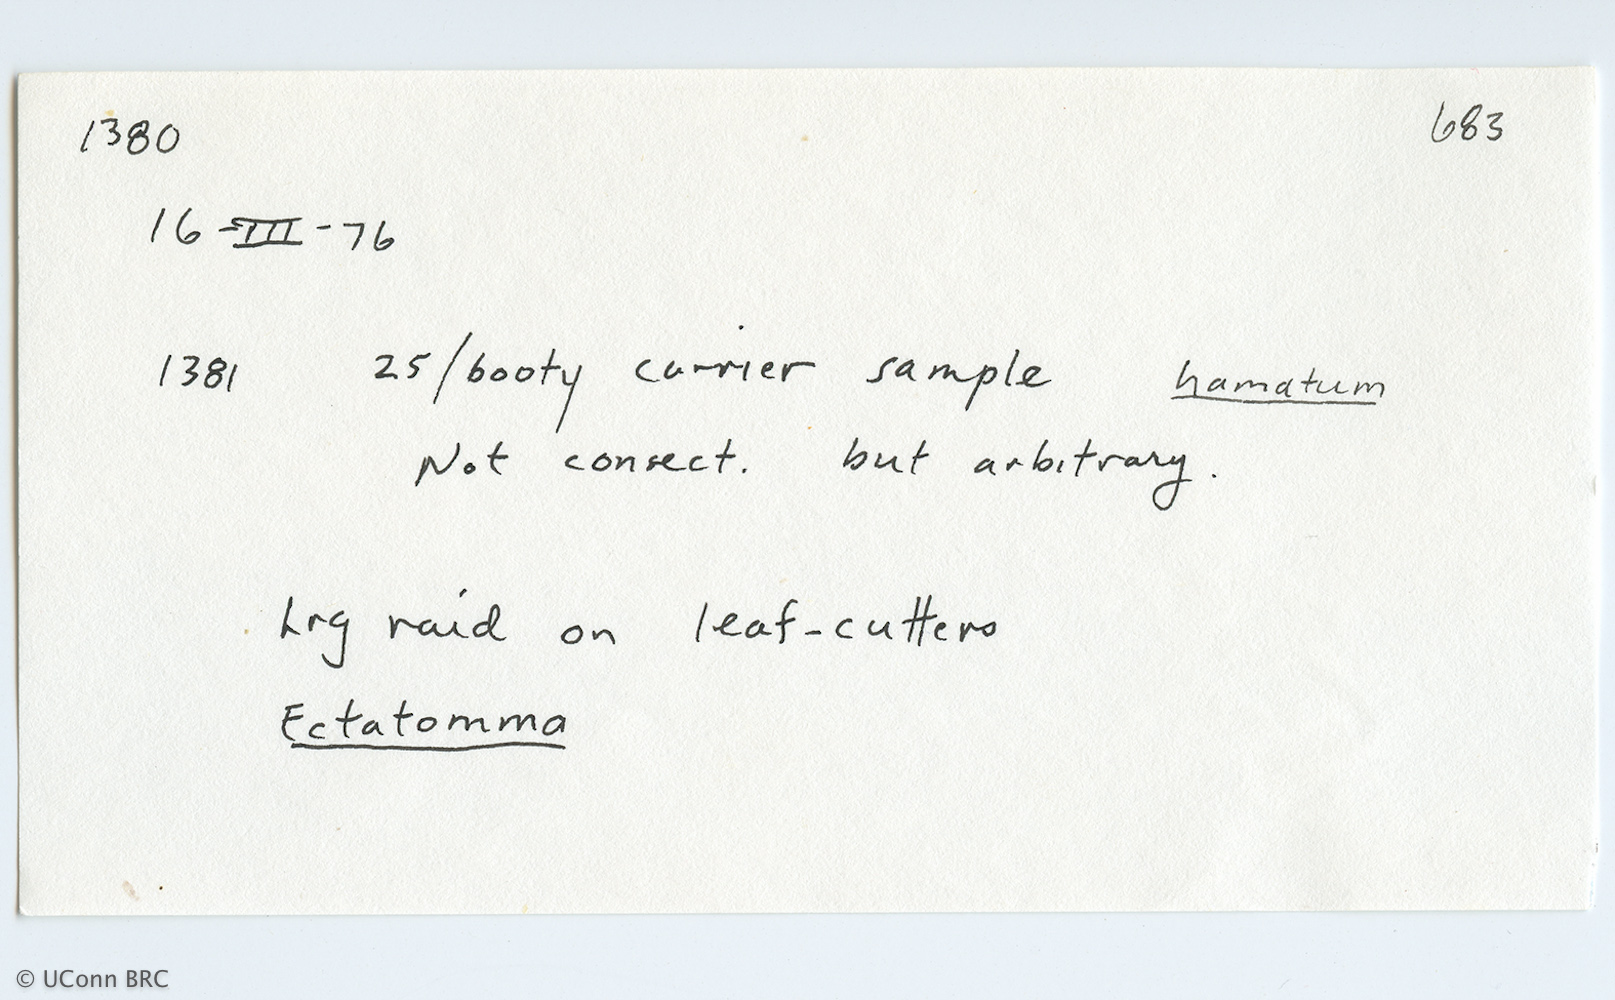 1380 683
16-III-76
1381 25/booty carrier sample hamatum
Not consect. but arbitrary.
Lrg raid on leaf-cutters
Ectatomma
© UConn BRC